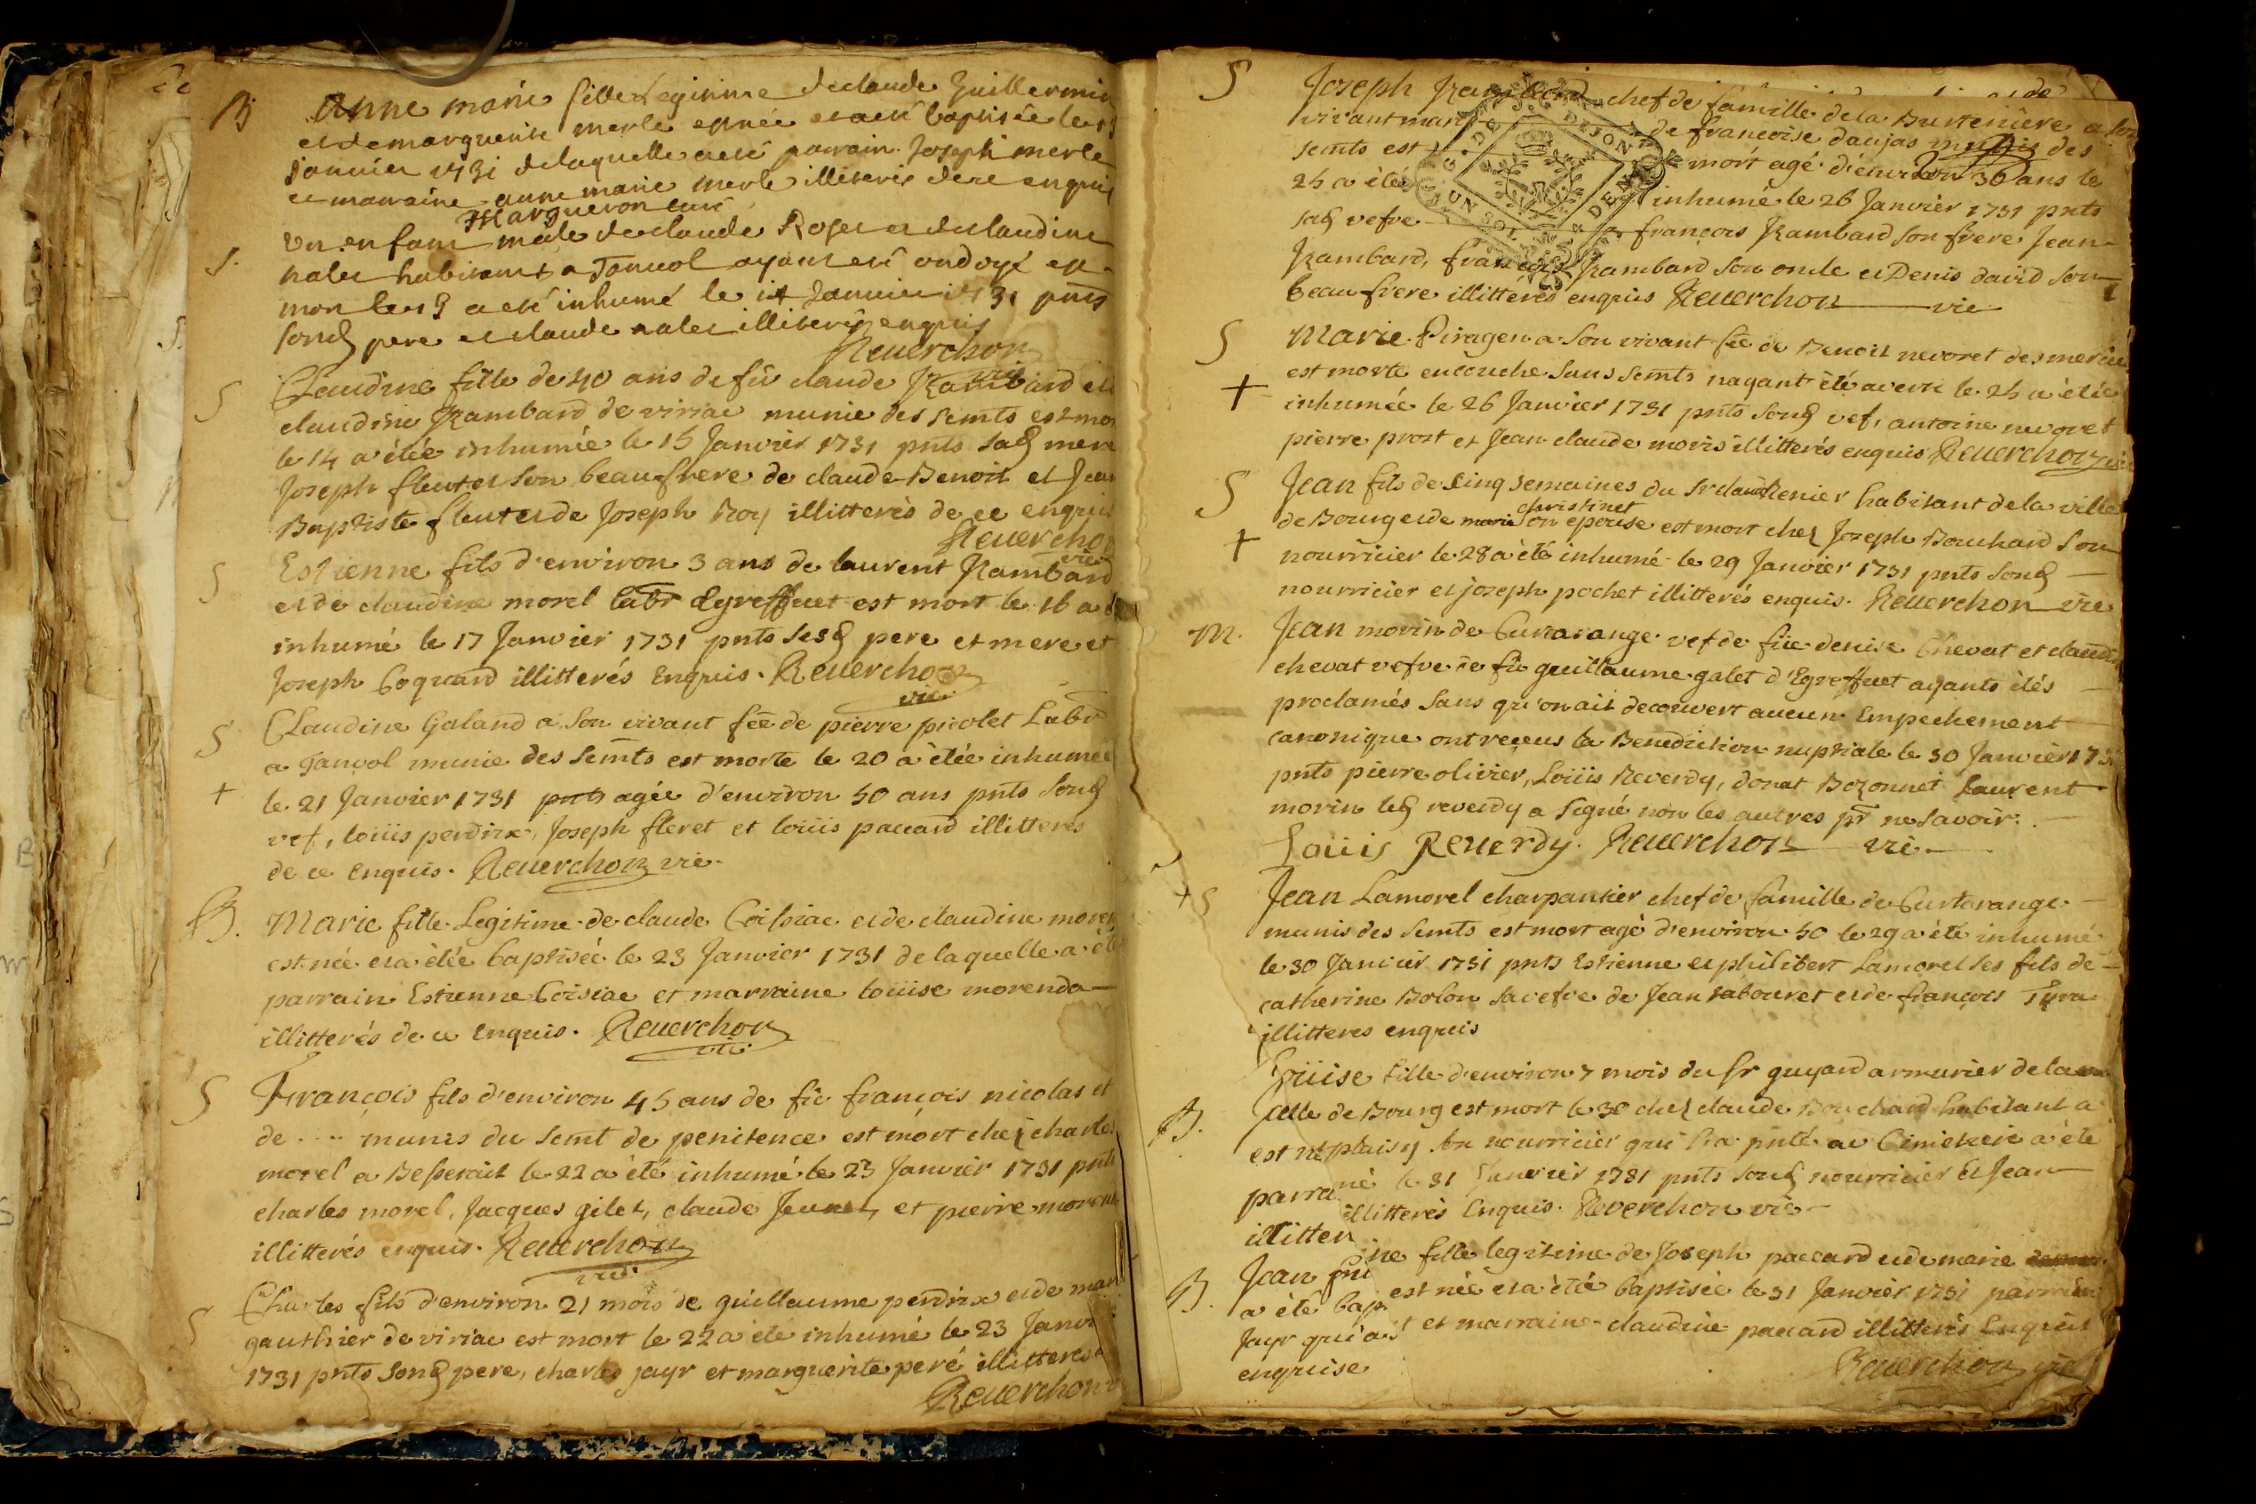 B Anne marie fille Legitime de claude Guillermin
et de marguerite merle est née et a été baptisée le 13
Janvier 1731 de laquelle a esté parrain Joseph merle
et marraine anne marie merle illiterés de ce enquis
Margueron curé
S. un enfant mâle de claude Roger et de claudine
nalet habitants a Janvol ayant eté ondoyé est
mort le 13 a eté inhumé le 14 Janvier 1731 pnts
sond pere et claude nalet illiterés enquis
Reverchon
S Claudine fille de 40 ans de fû claude Rambard et
claudine Rambard de viriac munie des semts est mor
le 14 a étée inhumée le 15 Janvier 1731 pnts sad mere
Joseph fleutet son beaufrere de claude Benoit et Jean
Baptiste fleutet de Joseph Roy illitterés de ce enquis
Reverchon
vic
S Estienne fils d'environ 3 ans de laurent Rambard
et de claudine morel labr Egreffuet est mort le 16 a é
inhumé le 17 Janvier 1731 pnts sesd pere et mere et
Joseph Coquard illitterés Enquis. Reverchon
vic
S Claudine Galand a son vivant fée de pierre picolet Labr
a Janvol munie des semts est morte le 20 a étée inhumée
+ le 21 Janvier 1731 pnts agée d'environ 50 ans pnts sond
vef, loüis perdrix, Joseph fleret et loüis paccard illitteres
de ce enquis. Reverchon vic.
B. Marie fille Legitime de claude Coissiac et de claudine moren
est née et a étée baptisée le 23 Janvier 1731 de laquelle a été
parrain Estienne Coisiac et marraine loüise morenda
illitterés de ce enquis. Reverchon
vic
S François fils d'environ 45 ans de fû françois nicolas et
de .... munis du semt de penitence est mort chez charles
morel a Besserait le 22 a été inhumé le 23 Janvier 1731 pnts
charles morel, Jacques gilet, claude Jeunet, et pierre moren
illitterés enquis. Reverchon
vic
S Charles fils d'environ 21 mois de guillaume perdrix et de mar
gauthier de viriac est mort le 22 a été inhumé le 23 Janvi
1731 pnts sond pere, charles jayr et marguerite peré illitteres
Reverchon
S Joseph Rambard chef de famille de la Burteniere a son
vivant mary de françoise daujas munis des
semts est mort agé d'environ 30 ans le
25 a été inhumé le 26 Janvier 1731 pnts
sad vefve françois Rambard son frere Jean
Rambard, françois Rambard son oncle et Denis david son
beaufrere illittérés enquis Reverchon vic
S Marie Piragen a son vivant fée de Benoit nevoret des mercie
+ est morte en couche sans semts nayant été averti le 25 a étée
inhumée le 26 Janvier 1731 pnts sond vef, antoine nevoret
pierre prost et Jean claude moris illitterés enquis Reverchon vic
S Jean fils de cinq semaines du Sr claude Renier habitant de la ville
christinet
de Bourg et de marie son epouse est mort chez Joseph Bouchard son
+ nourricier le 28 a été inhumé le 29 Janvier 1731 pnts sond
nourricier et joseph pochet illitterés enquis. Reverchon vic
M. Jean morin de Curtarange vef de fûe denise Chevat et claudine
chevat vefve de fû guillaume galet d'Egreffuet ayants étés
proclamés sans qu'on ait decouvert aucun Empechement
canonique ont receus la Benediction nuptiale le 30 Janvier 1731
pnts pierre olivier, Loüis Reverdy, donat Bozonnet laurent
morin led reverdy a signé non les autres pr ne savoir.
Loüis Reverdy. Reverchon vic
+ S Jean Lamorel charpantier chef de famille de Curtarange
munis des semts est mort agé d'environ 50 le 29 a été inhumé
le 30 Janvier 1731 pnts Estienne et philibert Lamorel ses fils de
catherine Bolon sa vefve de Jean labouret et de françois Tyra
illitteres enquis
Loüise fille d'environ 7 mois du Sr guyard armurier de la
ville de Bourg est mort le 30 chez claude Bouchard habitant a
B. est né plaisy son nourricier qui l'a pnté au Cimetiere a été
parra mé le 31 Janvier 1731 pnts sond nourricier et Jean
illitterés Enquis. Reverchon vic
illitter
ine fille legitime de Joseph paccard et de marie
B. Jean
est née et a étée baptisée le 31 Janvier 1731 parrain
a été bap
et marraine claudine paccard illitterés Enquis
Jayr qui a
enquise
Reverchon vic